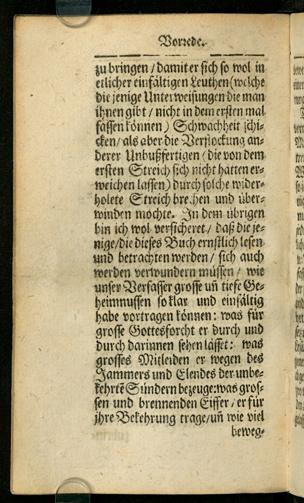 Vorrede.
zu bringen / damit er sich so wol in
etlicher einfältigen Leuthen (welche
die jenige Unterweisungen die man
ihnen gibt / nicht in dem ersten mal
fassen können) Schwachheit schi-
cken / als aber die Verstockung an-
derer Unbußfertigen (die von dem
ersten Streich sich nicht hatten er-
weichen lassen) durch solche wider-
holete Streich brechen und über-
winden möchte. In dem übrigen
bin ich wol versicheret / daß die je-
nige / die dieses Buch ernstlich lesen
und betrachten werden / sich auch
werden verwundern müssen / wie
unser Verfasser grosse uñ tiefe Ge-
heimnussen so klar und einfältig
habe vortragen können: was für
grosse Gottesforcht er durch und
durch darinnen sehen lasset: was
grosses Mitleiden er wegen des
Jammers und Elendes der unbe-
kehrtē Sündern bezeuge: was gros-
sen und brennenden Eiffer / er für
ihre Bekehrung trage / uñ wie viel
beweg-